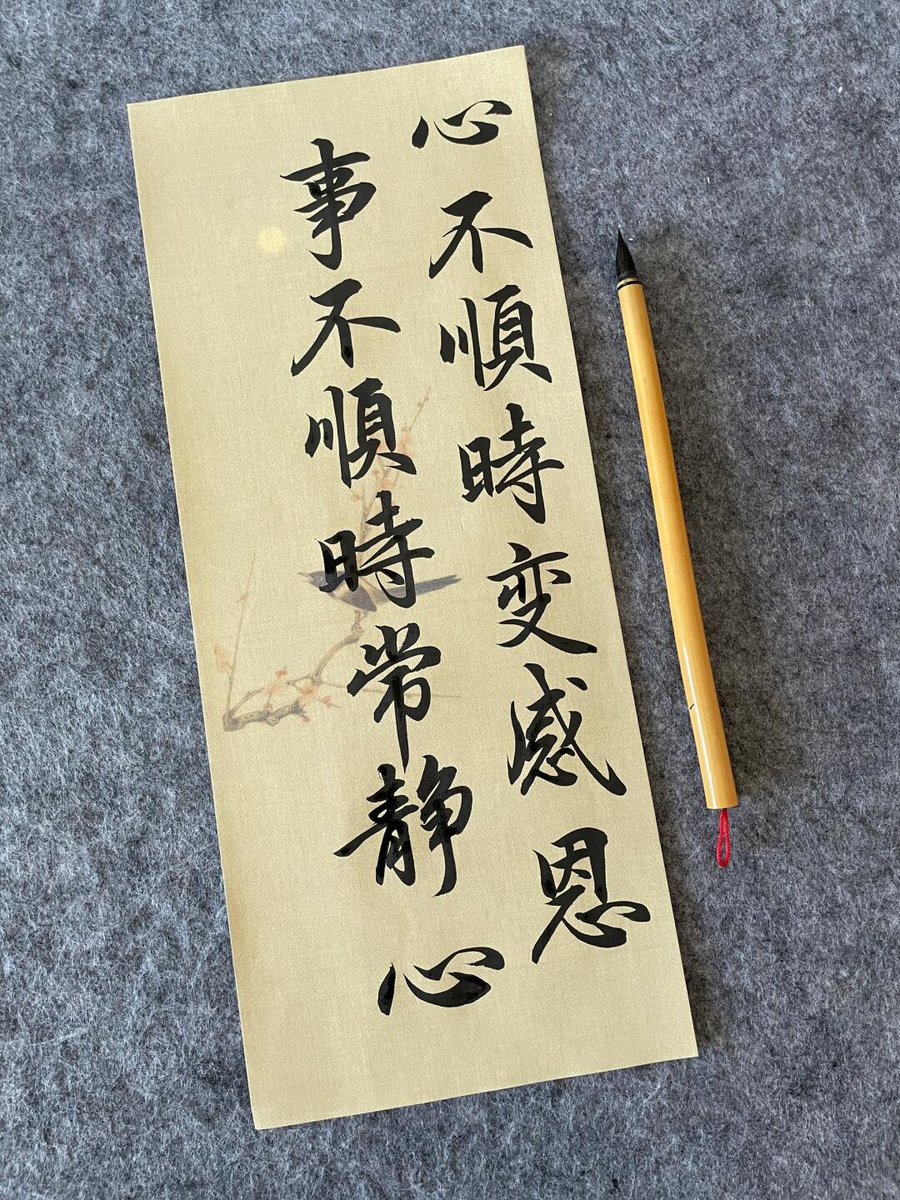 心不順時变感恩
事不順時常静心